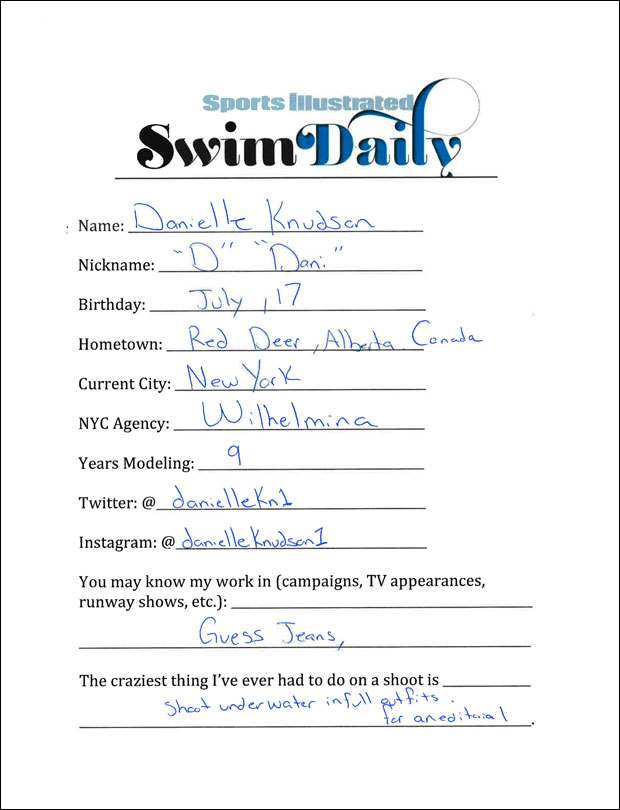 Sports Illustrated
Swim Daily
Name: Danielle Knudson
Nickname: "D" "Dani"
Birthday: July, 17
Hometown: Red Deer, Alberta Canada
Current City: New York
NYC Agency: Wilhelmina
Years Modeling: 9
Twitter: @ danielleKn1
Instagram: @ danielleKnudson1
You may know my work in (campaigns, TV appearances,
runway shows, etc.):
Guess Jeans,
The craziest thing I've ever had to do on a shoot is
shoot underwater in full outfits.
for an editorial.